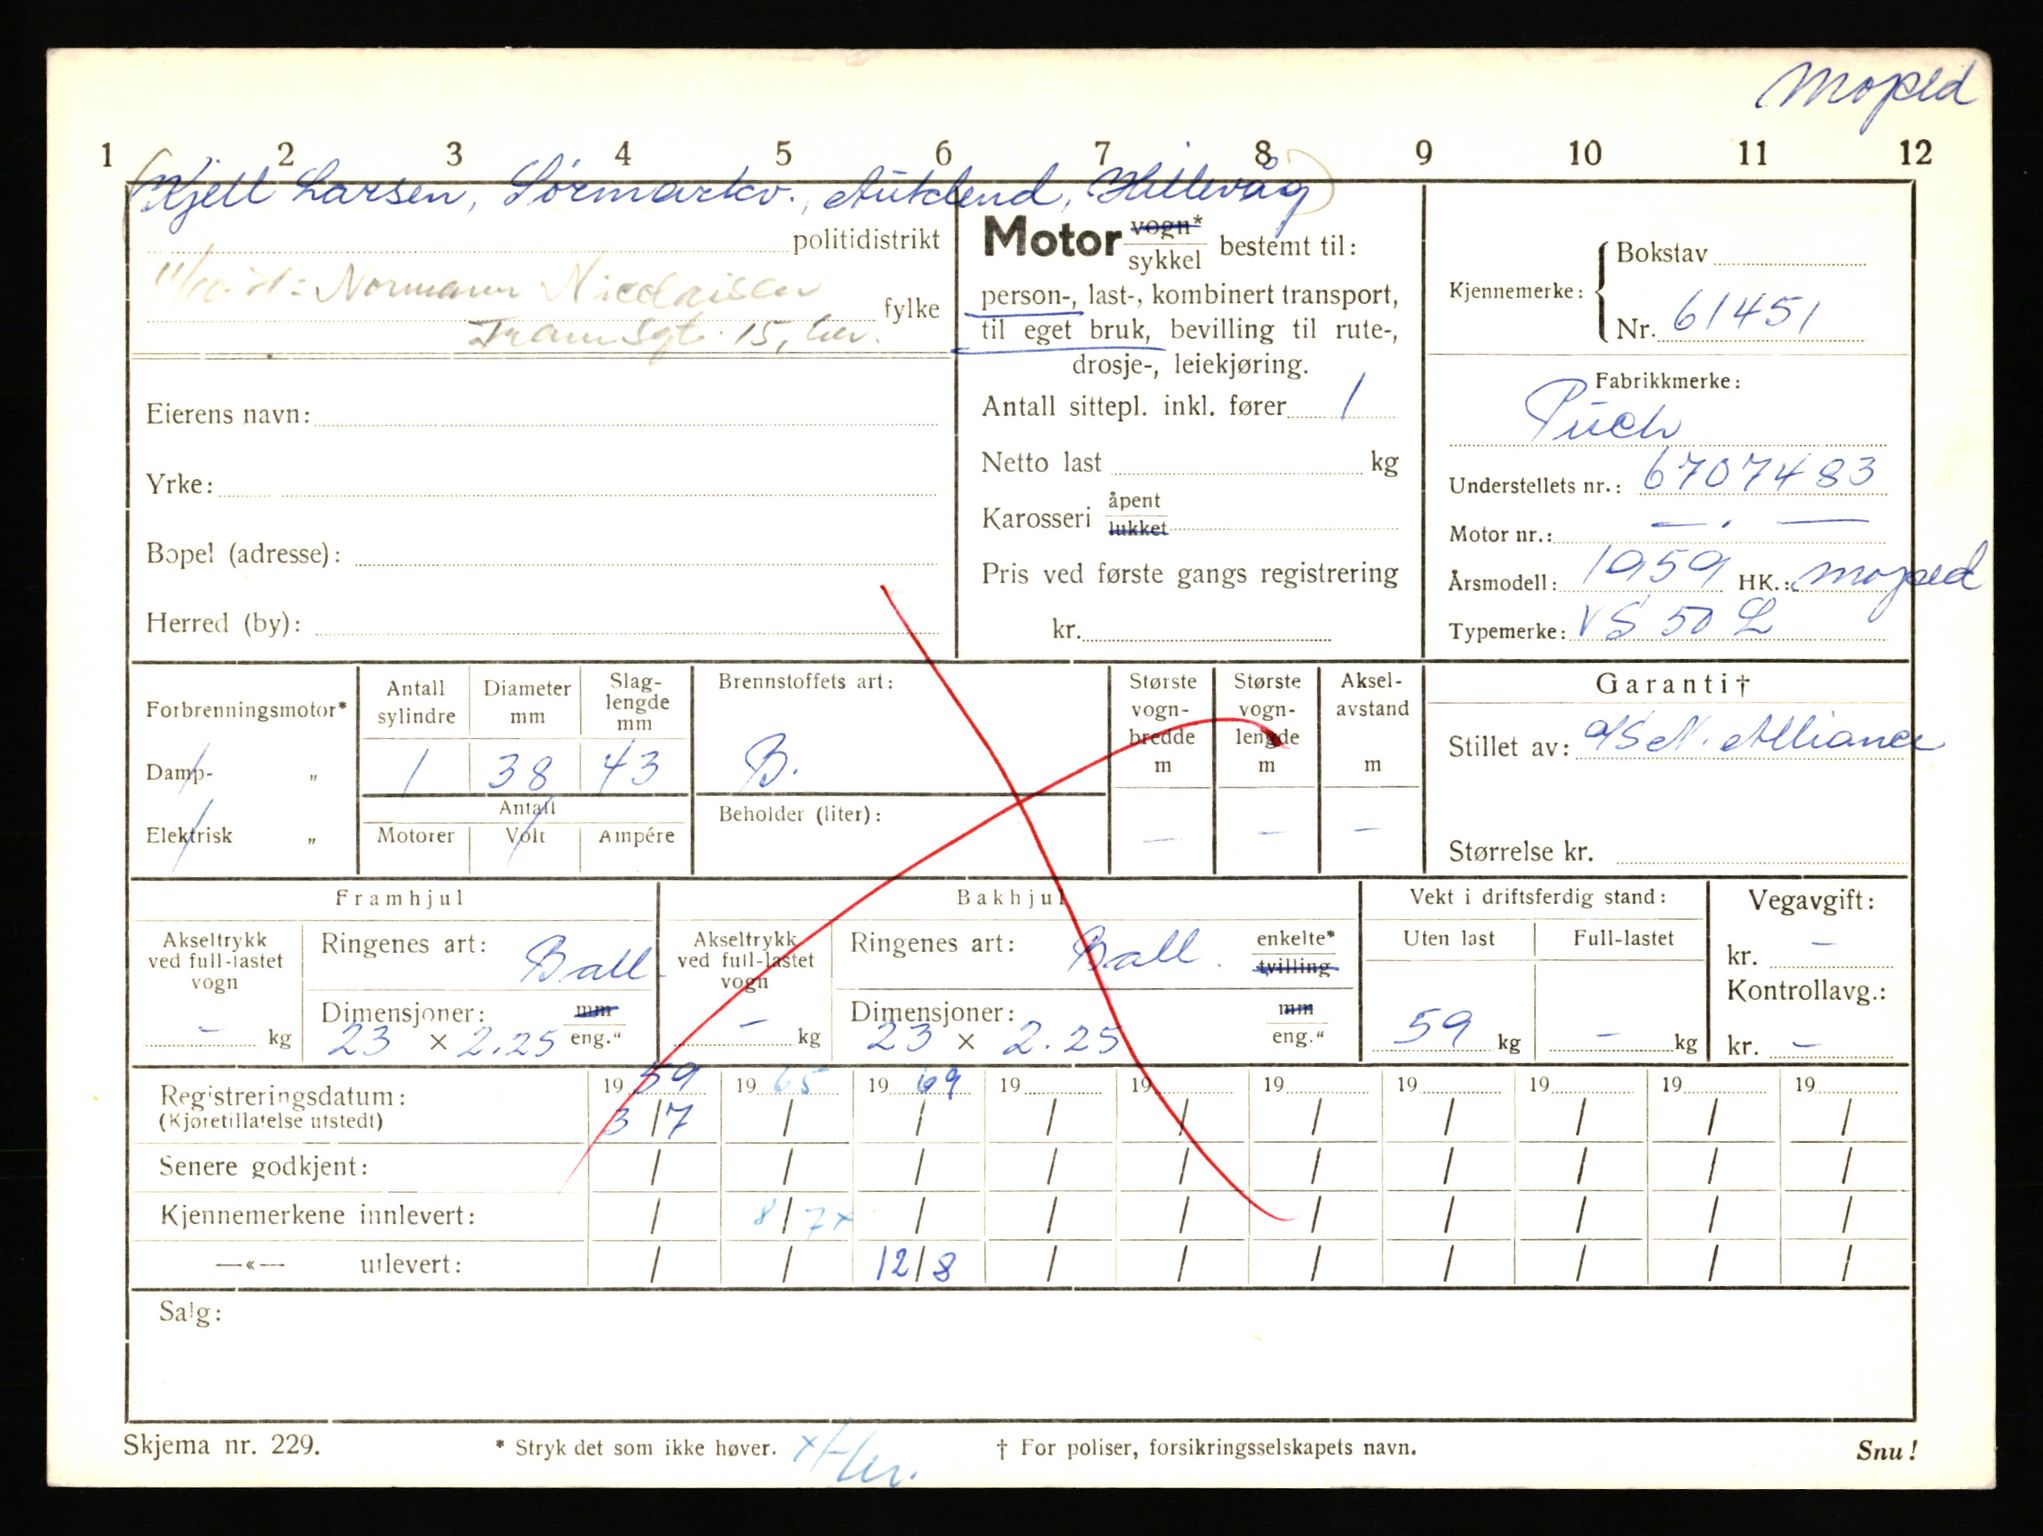 Moped
1 2 3 4 5 6 7 8 9 10 11 12
(Kjell Larsen, Sørmarkv., Auklend, Hillevåg)
politidistrikt
Normann Nicolaisen
fylke
15, her.
Eierens navn:
Yrke:
Bopel (adresse):
Herred (by):
Motor vogn* sykkel bestemt til:
person-, last-, kombinert transport,
til eget bruk, bevilling til rute-,
drosje-, leiekjøring.
Antall sittepl. inkl. fører 1
Netto last kg
Karosseri åpent lukket
Pris ved første gangs registrering
kr.
Kjennemerke: Bokstav
Nr. 61451
Fabrikkmerke:
Puch
Understellets nr.: 6707483
Motor nr.: — . —
Årsmodell: 1959 HK.: moped
Typemerke: VS 50 L
Forbrenningsmotor*
Damp- „
Elektrisk „
Antall sylindre
Diameter mm
Slag-lengde mm
1 38 43
Antall
Motorer Volt Ampére
Brennstoffets art:
B.
Beholder (liter):
Største vogn-bredde m
–
Største vogn-lengde m
–
Aksel-avstand m
–
Garanti†
Stillet av: a/s N. Alliance
Størrelse kr.
Framhjul
Akseltrykk ved full-lastet vogn
– kg
Ringenes art: Ball.
Dimensjoner: mm
23 × 2.25 eng."
Bakhjul
Akseltrykk ved full-lastet vogn
– kg
Ringenes art: Ball. enkelte* tvilling
Dimensjoner: mm
23 × 2.25 eng."
Vekt i driftsferdig stand:
Uten last Full-lastet
59 kg – kg
Vegavgift:
kr. –
Kontrollavg.:
kr. –
Registreringsdatum: 19 59 19 65 19 69 19 19 19 19 19 19 19
(Kjøretillatelse utstedt) 3/7 / / / / / / / / /
Senere godkjent: / / / / / / / / / /
Kjennemerkene innlevert: / 8/7x / / / / / / / /
—«— utlevert: / / 12/8 / / / / / / /
Salg:
Skjema nr. 229.
* Stryk det som ikke høver.
† For poliser, forsikringsselskapets navn.
Snu!